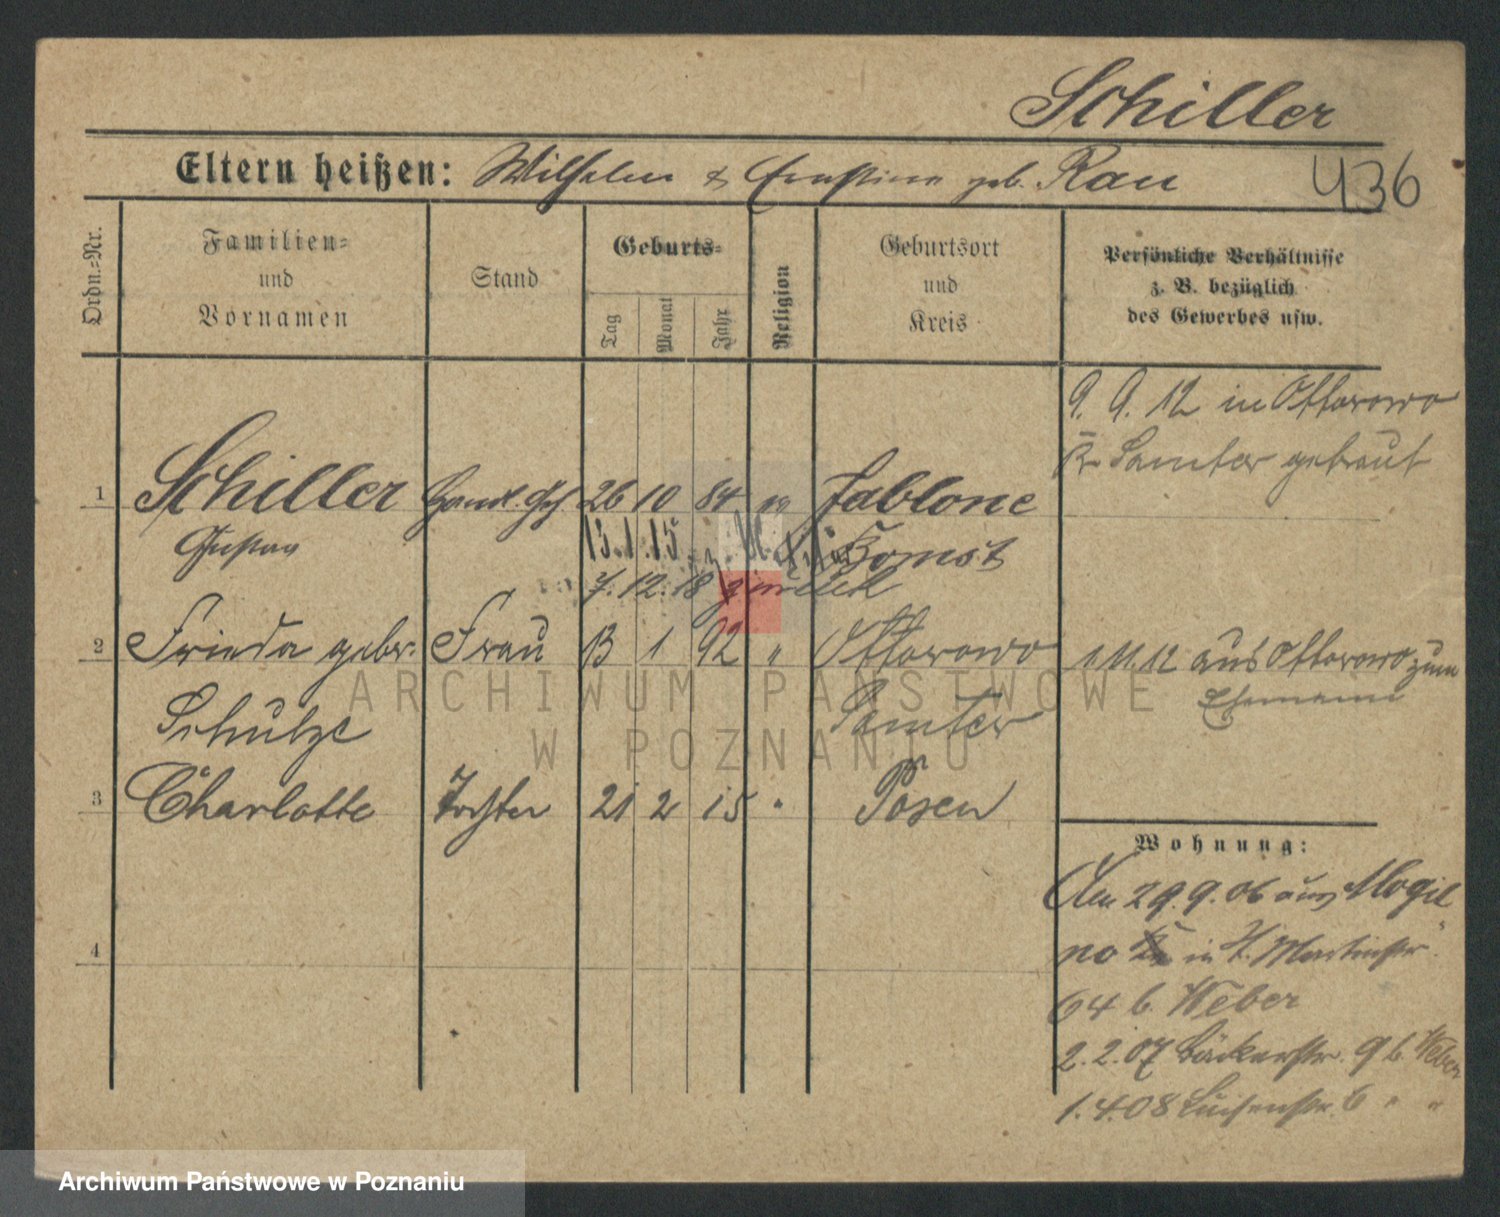 Schiller
Eltern heißen: Wilhelm & Ernstine geb. Rau
436
Ordn.-Nr.
Familien-
und
Vornamen
Stand
Geburts-
Tag
Monat
Jahr
Religion
Geburtsort
und
Kreis
Persönliche Verhältnisse
z. B. bezüglich
des Gewerbes usw.
9. 9. 12 in Ottorowo
Kr Samter getraut
1 Schiller Handl. Geh 26 10 84 ev Jablone
Gustav Bomst
13.1.15 z.
7.12.18 zurück
2 Frieda geber. Frau 13 1 92 " Ottorowo 1.11.12 aus Ottorowo zum
Schulze Samter Ehemann
3 Charlotte Tochter 21 2 15 " Posen
4
Wohnung:
Den 29.9.06 aus Mogil
no in St. Martinstr.
64 b. Weber
2.2.07 Bäckerstr. 9 b. Weber
1.4.08 Luisenstr. 6 " "
ARCHIWUM PAŃSTWOWE
W POZNANIU
Archiwum Państwowe w Poznaniu